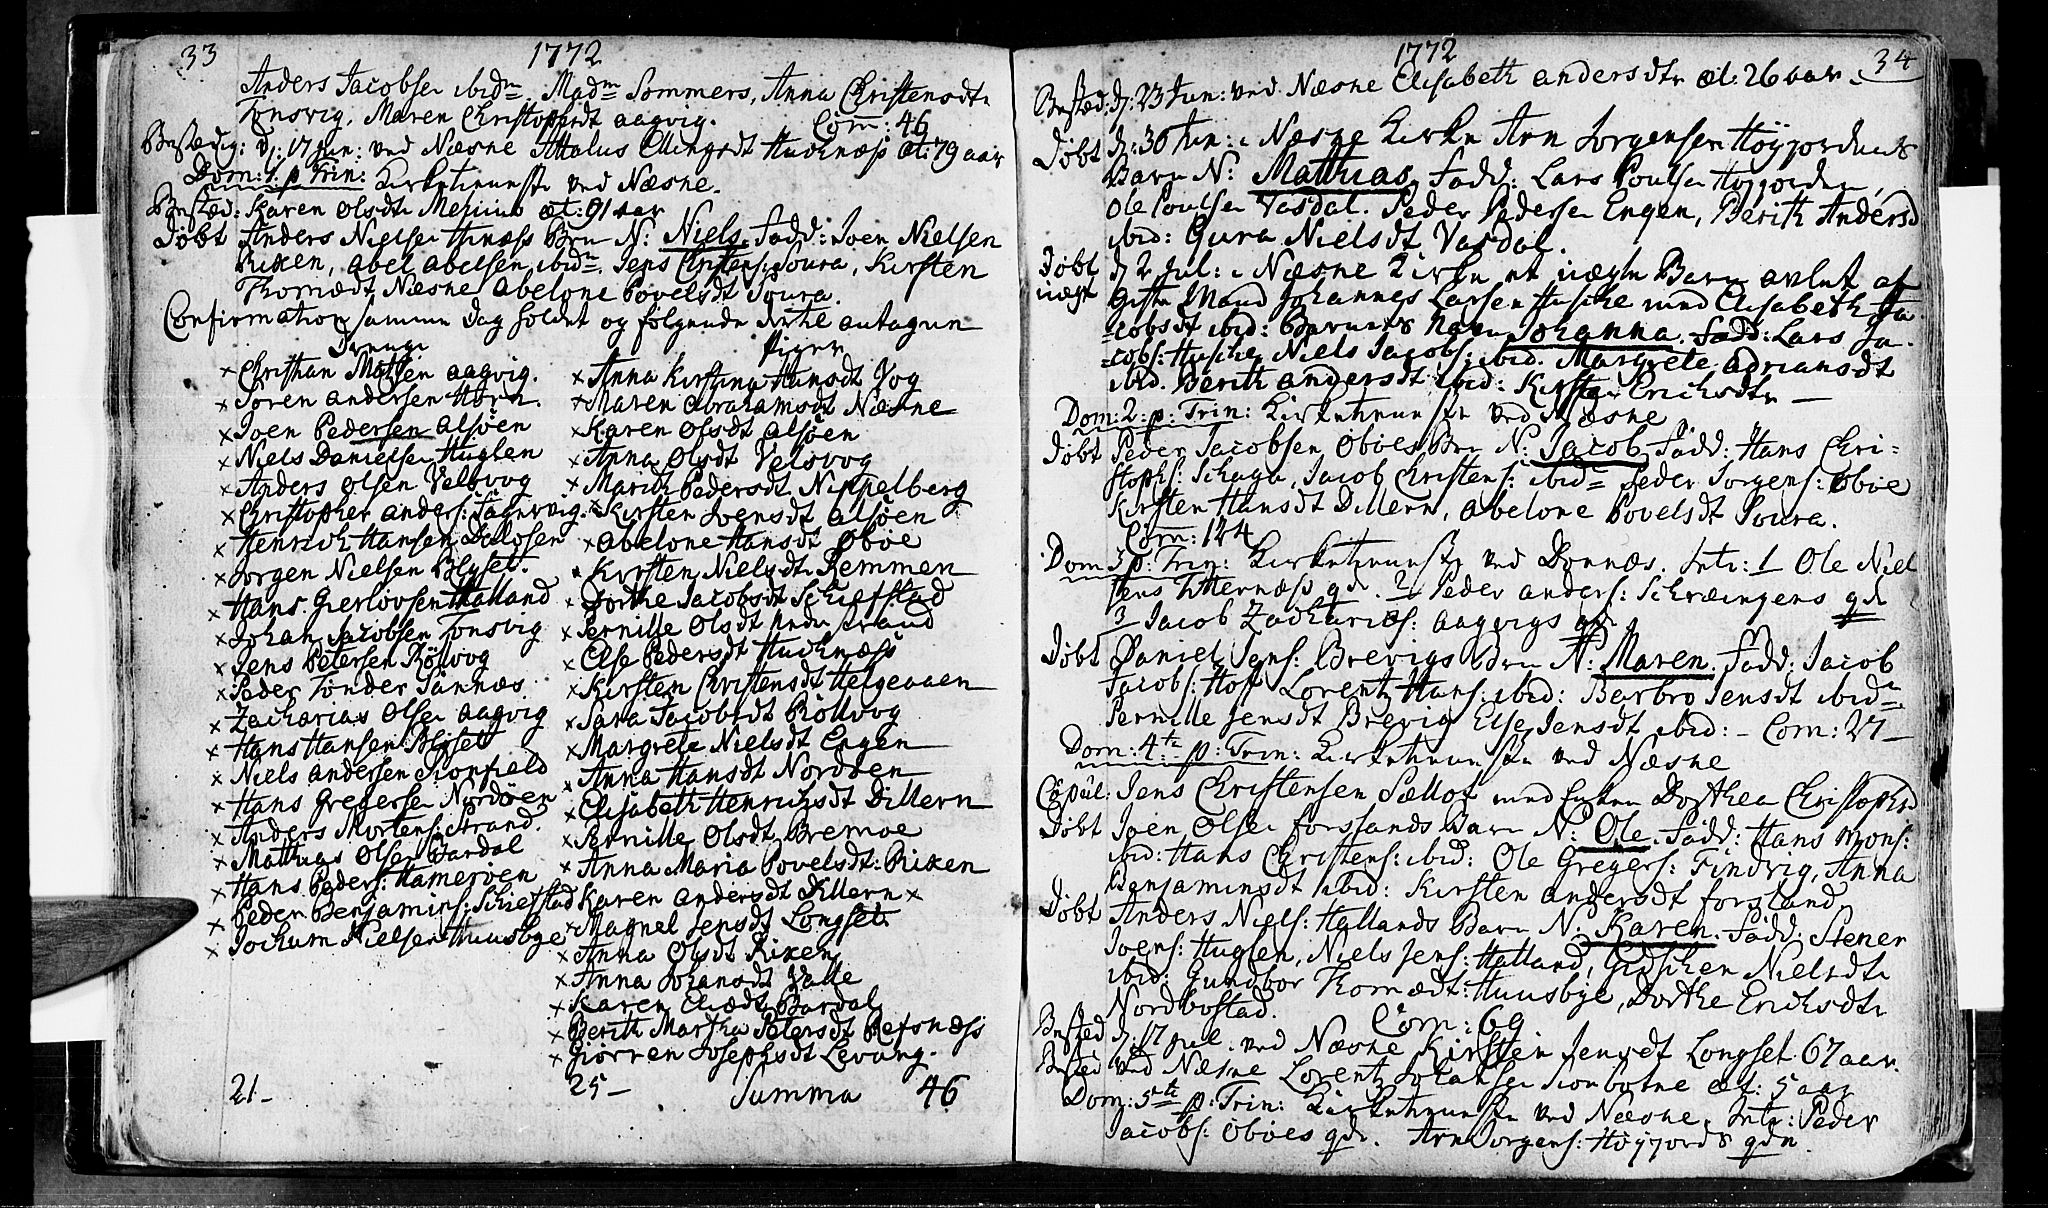 33
1772
Anders Jacobsen ibidm. Madm Sommers, Anna Christensdtr
Tonsvig, Maren Christophsdt aagvig. Com: 46
Begedig: d: 17 Jun: ved Næsne Attalus Ellingsdt Hudknæss æt: 79 aar
Dom: 1. p Trin: Kirketienniste ved Næsne.
Karen Olsdtr æt: 91 aar
Döbt Anders Nielsen Brn N: Niels. Fadd: Joen Nielsen
Rixen, Abel Abelsen ibidm. Jens Christens: Soura, Kirsten
Thomædt Næsne Abelone Povelsdt Soura.
Confirmation samme Dag holdet og følgende dertil antagen
Drenge
× Christian Matsen aagvig.
× Soren Andersen Horn.
× Joen Pedersen Alsöen
× Niels Danielsen Huglen
× Anders Olsen Velsvog
× Christopher Anders:
× Henrich Hansen Dalosen
× Jorgen Nielsen Blyset.
× Hans Gierlovsen Halland
× Johan Jacobsen Tonsvig
× Jens Petersen Röllvog
× Peder Tönder Sannæs
× Zacharias Olsen aagvig
× Hans Hansen Blyset
× Niels Andersen Sionfield
× Hans Gregersen Nordöen
× Anders Mortens: Strand.
× Matthias Olsen Bardal
× Hans Peders: Hameröen
× Peder Benjamins: Schiefstad
× Jochum Nielsen Huusbye
21-
Piger
× Anna Kirstina Hansdt Vog
× Maren Abrahamsdt Næsne
× Karen Olsdt Alsöen
× Anna Olsdt Velsvog
× Marith Pedersdt Nippelberg
× Kirsten Joensdt Alsöen
× Abelone Hansdt Oboe
× Kirsten Nielsdt Remmen
× Dorthe Jacobsdt Schiefstad
× Pernille Olsdt Strand
× Else Pedersdt Hudknæss
× Kirsten Christensdt Helgeaaen
× Sara Jacobsdt Röllvog
× Margrete Nielsdt Engen
× Anna Hansdt Nordöen
× Elisabeth Henrichsdt Dillern
× Pernille Olsdt Bremoe
× Anna Maria Povelsdt: Rixen
Karen Andersdt Dillern ×
× Magnel Jensdt Longset
× Anna Olsdt Rixen
× Anna Johansdt Valle
× Karen Eliædt Bardal
× Berith Martha Petersdt Refsnæss
× Giörren Josephsdt Levang.
25- Summa 46
1772
34
Begsted: d: 23 Jun: ved Næsne Elisabeth Andersdtr æt: 26 aar.
Döbt d: 30 Jun: i Næsne Kirke Arn Jorgensen Höyjordens
Barn N: Matthias. Fadd: Lars Poulsen Höyjorden,
Ole Poulsen Vasdal. Peder Pedersen Engen, Berith Andersd
ibid: Gura Nielsdt Vasdal.
Döbt d: 2 Jul: i Næsne Kirke et uægte Barn avlet af
uægt Gifte Mand Johannes Larsen Husche med Elisabeth Ja-
=cobsdt ibid: Barnets Navn Johanna. Fadd: Lars Ja-
=cobs: Husche, Niels Jacobs: ibid. Margrete Adriansdt
ibid. Berith Andersdt ibid: Kirsten Erichsdtr
Dom: 2: p: Trin: Kirketienniste ved Næsne
Döbt Peder Jacobsen Oboes Brn N: Jacob. Fadd: Hans Chri-
stophs: Schaga, Jacob Christens: ibid= Peder Jorgens: Oboe
Kirsten Hansdt Dillern, Abelone Povelsdt Soura.
Com: 124
Dom 3 p: Trin: Kirketienniste ved Dønnæs. Intr: 1 Ole Niel
sens Titternæss qde 2 Peder Anders: Schreingens qde
3 Jacob Zacharias: aagvigs qde
Döbt Daniel Jens: Brevigs Brn N: Maren. Fadd: Jacob
Jacobs: Hof Lorentz Hans: ibid: Barbro Jensdt ibid=
Pernille Jensdt Brevig Else Jensdt ibid: - Com: 27-
Dom: 4te p: Trin: Kirketienniste ved Næsne
Copul: Jens Christensen Sellot med Enken Dorthea Christophsd
Döbt Joen Olsen Forslands Barn N: Ole. Fadd: Hans Mons:
ibid: Hans Christens: ibid: Ole Gregers: Findvig, Anna
Benjaminsdt ibid: Kirsten Andersdt Forsland.
Döbt Anders Niels: Hallands Barn N: Karen. Fadd: Stener
Joens: Huglen, Niels Jens: Halland, Gidschen Nielsdt
ibid: Gundbor Thomædt: Huusbye, Dorthe Erichsdtr
Nordbostad. Com: 69
Begsted d: 17 Jul. ved Næsne Kirsten Jensdt Longset 67 aar.
Begsted ved Næsne Lorentz Johansen Sionbotne æt: 5 aar
Dom: 5te p: Trin: Kirketienniste ved Næsne. Intr: Peder
Jacobs: Oboes qde. Arn Jorgens: Höyjords qden